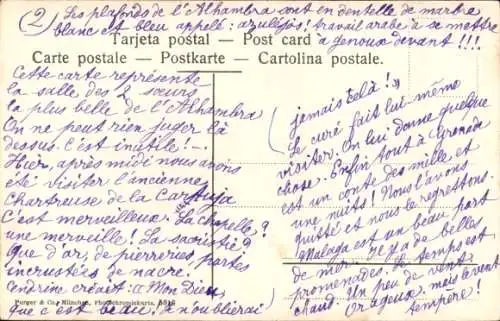 (2) Les plafonds de l'Alhambra sont en dentelle de marbre
blanc et bleu appelé : azulejos ! travail arabe à se mettre
à genoux devant !!!
Tarjeta postal — Post card
Carte postale — Postkarte — Cartolina postale.
Cette carte représente
la salle des 2 sœurs
la plus belle de l'Alhambra
On ne peut rien juger là
dessus. C'est inutile ! —
Hier, après midi nous avons
été visiter l'ancienne
Chartreuse de la Cartuja
C'est merveilleux. La chapelle ?
une merveille ! La sacristie ?
Que d'or, de pierreries, portes
incrustées de nacre.
Cendrine créait : O Mon Dieu
que c'est beau. Je n'oublierai
jamais celà ! »
Le curé fait lui-même
visiter. On lui donne quelque
chose. Enfin tout à Grenade
est un conte des mille et
une nuits ! Nous l'avons
quitté et nous le regrettons.
Malaga est un beau port
de mer. Il y a de belles
promenades. Le temps est
chaud. Un peu de vent
orageux, mais le vent
tempère !
Purger & Co., München, Photochromiekarte,